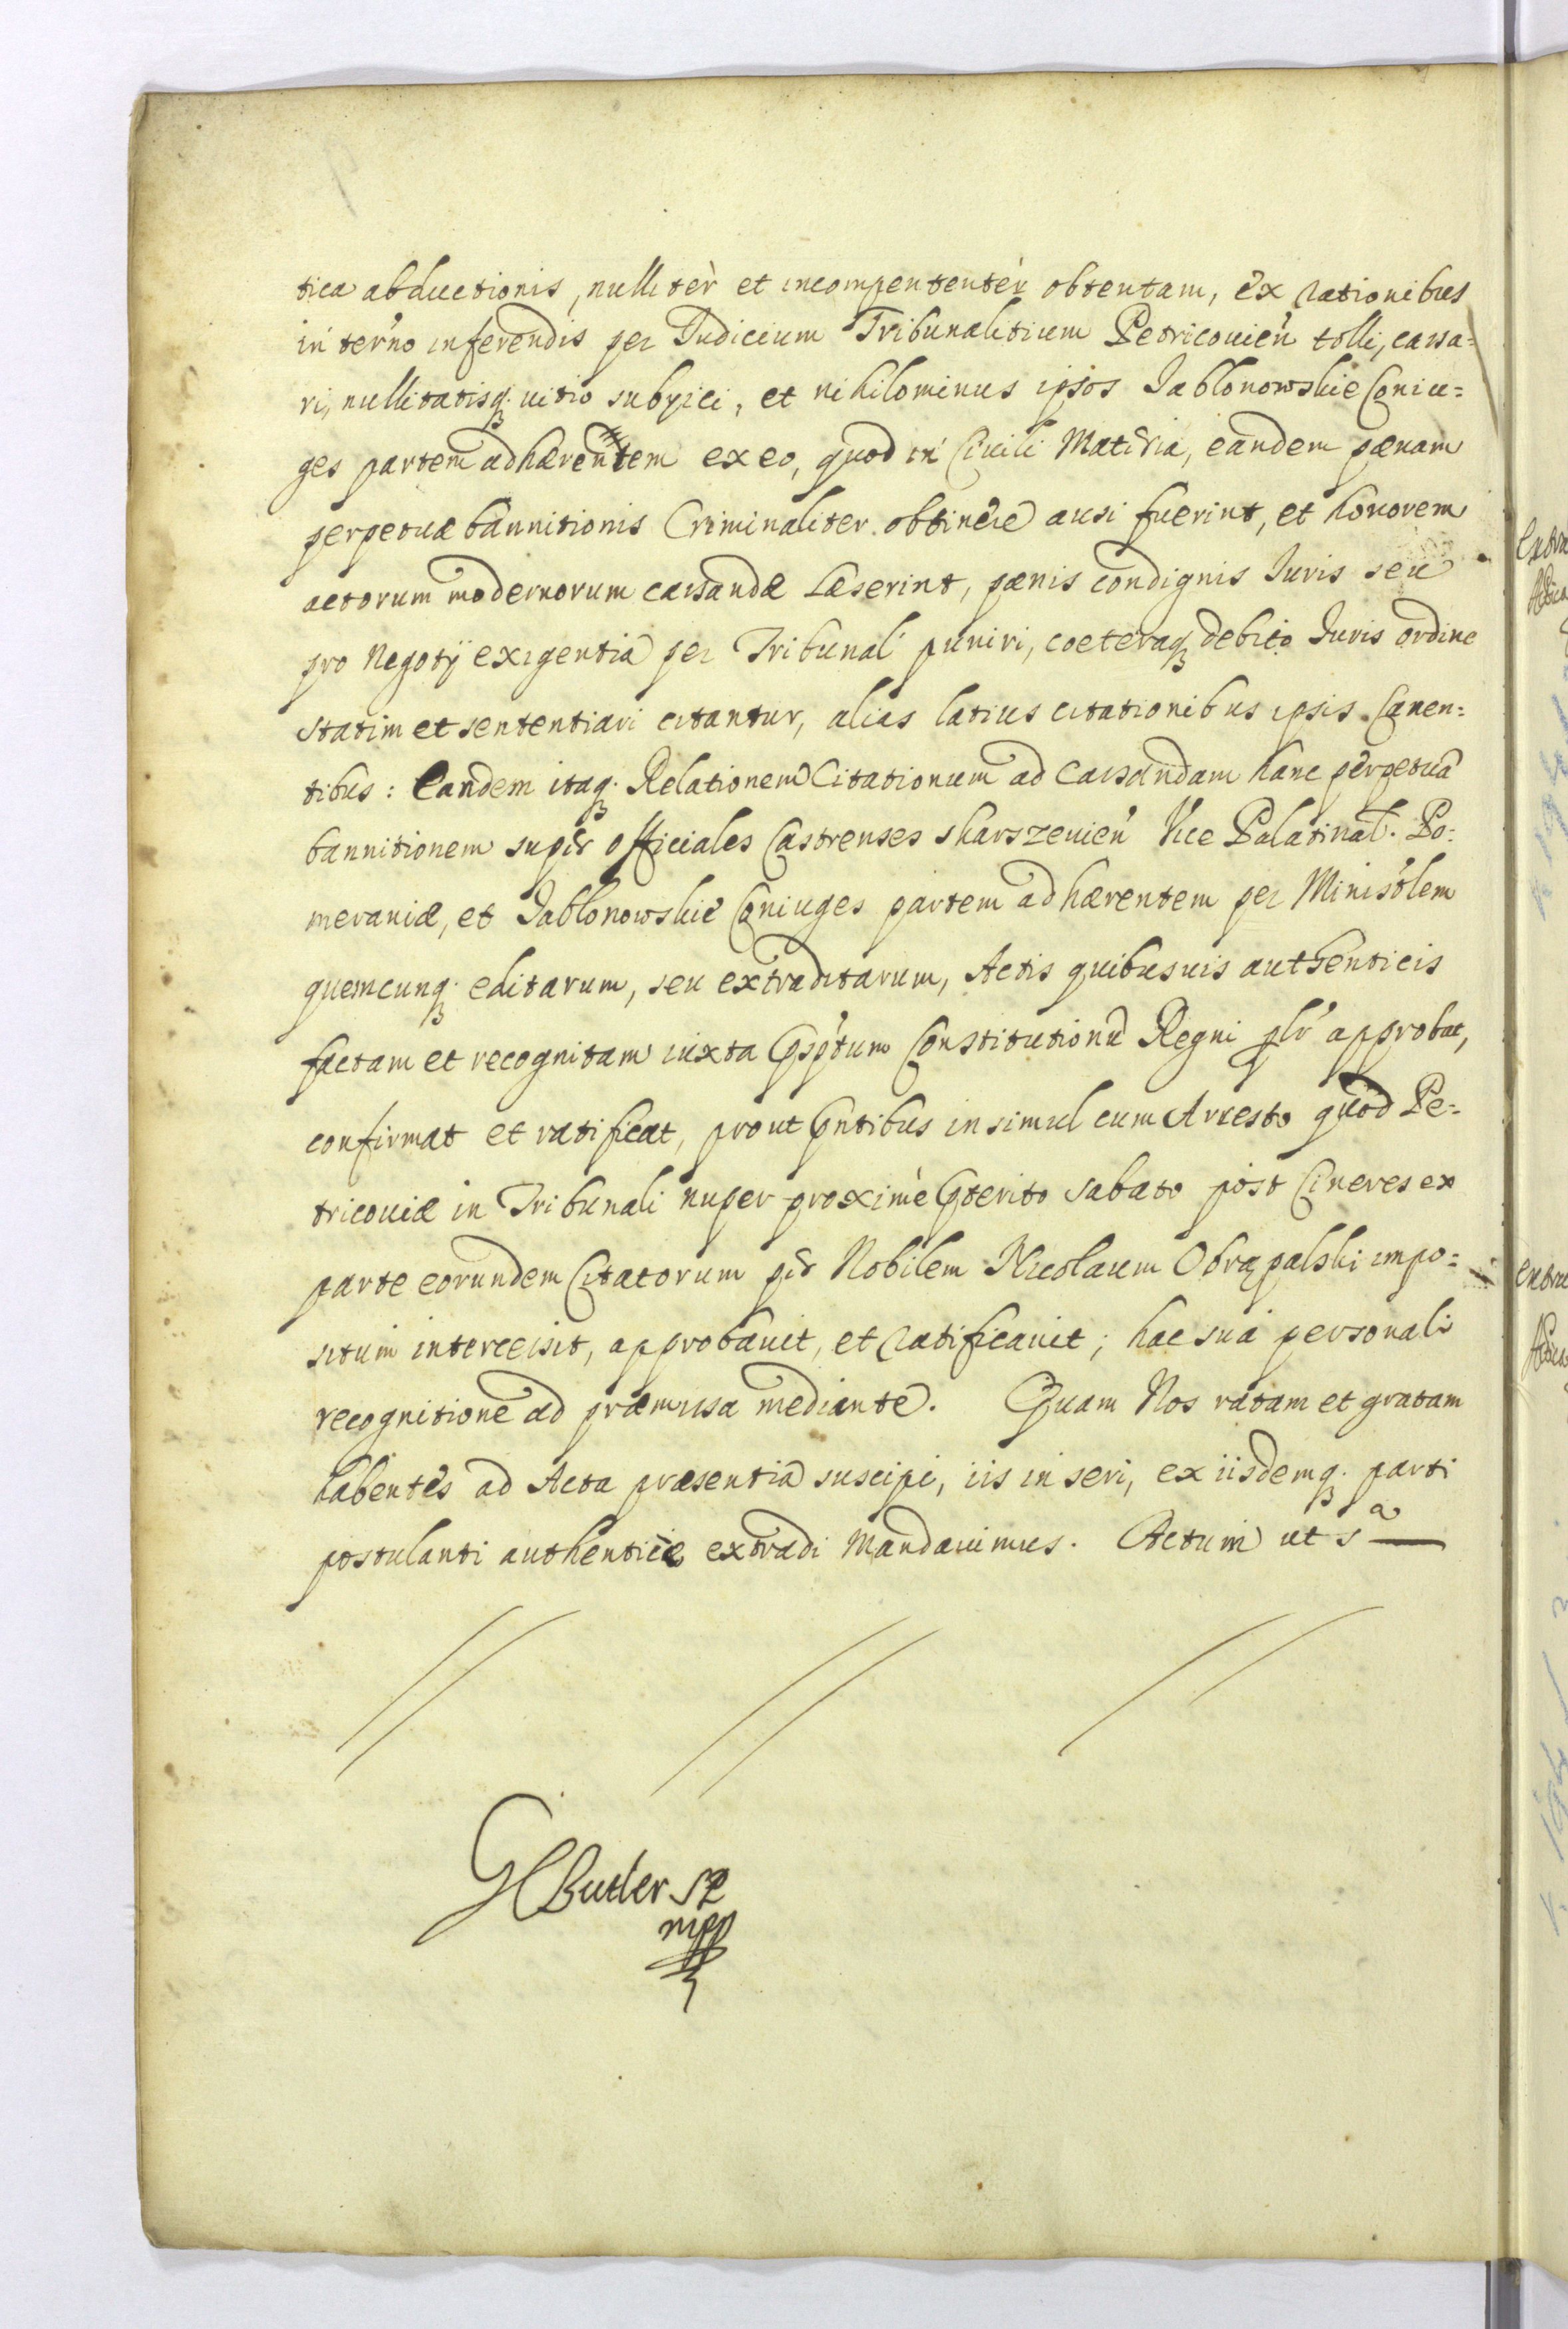 tica abductionis, nulliter et incompententer obtentam, ex rationibus
in terno inferendis per Iudicium Tribunalitium Petricovien tolli, cassa=
ri, nullitatisq. vitio subyici, et nihilominus ipsos Jablonowskie Coniu=
ges partem adhærentem ex eo, quod in Civili Materia, eandem pænam
perpetuæ bannitionis Criminaliter obtinere ausi fuerint, et honorem
actorum modernorum cassandæ læserint, pænis condignis Iuris seu
pro Negotÿ exigentia per Tribunal puniri, coeteraq debito Iuris ordine
statim et sententiari citantur, alias latius citationibus ipsis Canen=
tibus: Eandem itaq. Relationem Citationum ad cassandam hanc perpetuã
bannitionem super Officiales Castrenses skarszevien Vice Palatinal. Po=
meraniæ, et Jablonowskie Coniuges partem adhærentem per Minis'tlem
quemcunq. editarum, seu extraditarum, Actis quibusvis authenticis
factam et recognitam iuxta Constitutionũ Regni approbat,
confirmat et ratificat, prout insimul cum Arresto quod Pe=
tricoviæ in Tribunali nuper proxime pterito Sabato post Cineres ex
parte eorundem Citatorum per Nobilem Nicolaum Obrąpalski impo=
situm intercessit, approbavit, et ratificavit; hac sua personali
recognitione ad præmissa mediante. Quam Nos ratam et gratam
habentes ad Acta præsentia suscipi, iis inseri, ex iisdemq. parti
postulanti authentice extradi mandavimus. Actum ut s<sup>a</sup>
Butler SP
mpp